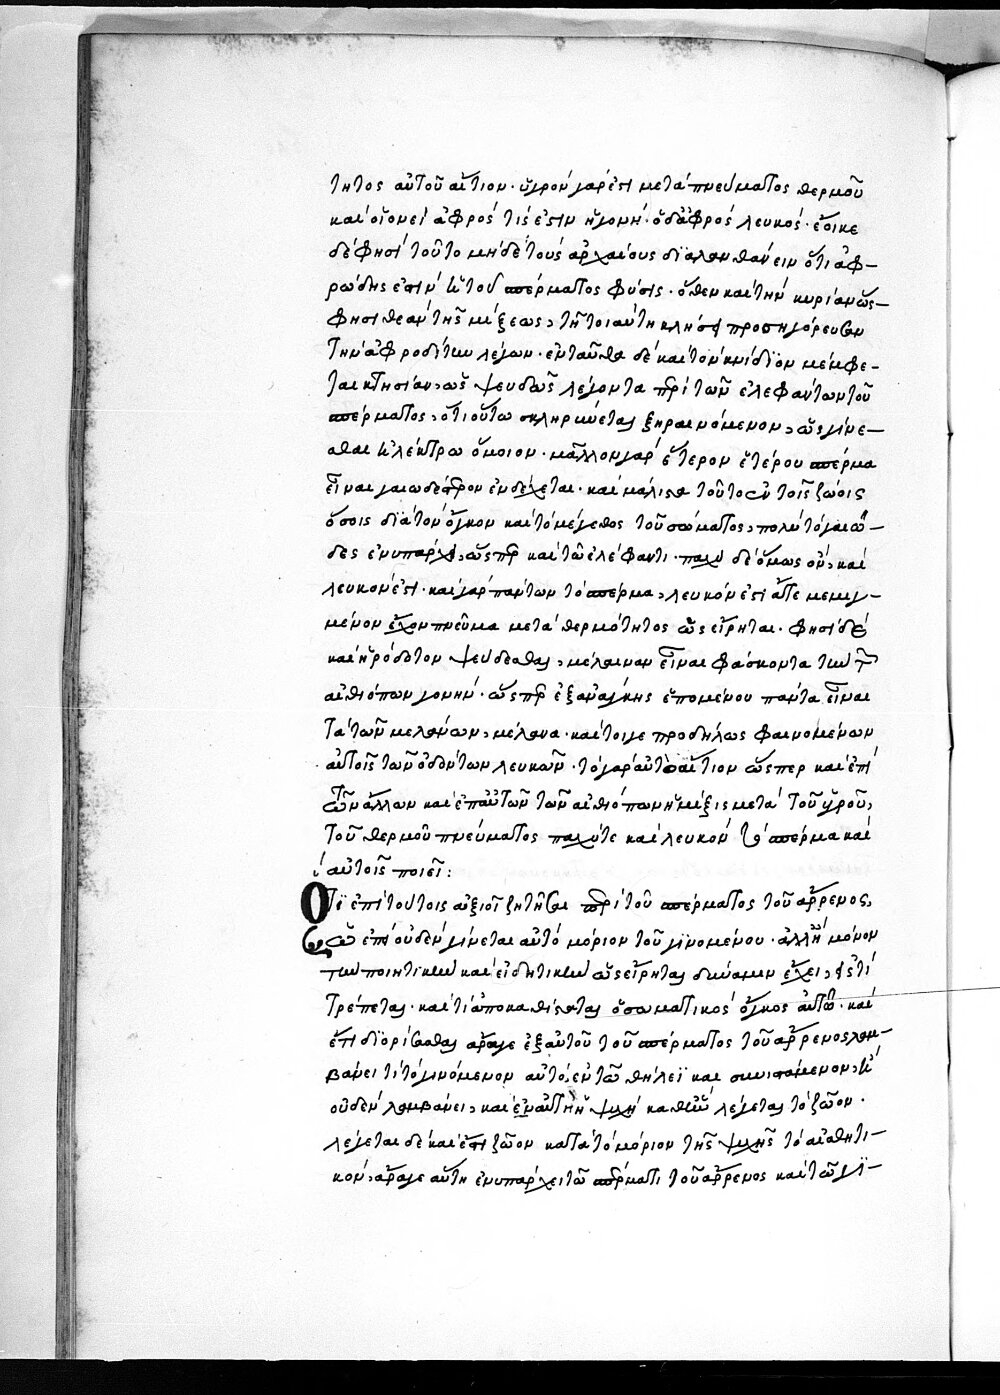 τητος αὐτοῦ αἴτιον· ὑγρὸν γάρ ἐστι μετὰ πνεύματος θερμοῦ
καὶ οἱονεὶ ἀφρός τίς ἐστιν ἡ γονή· ὁ δ' ἀφρὸς λευκός· ἔοικε
δέ φησὶ τοῦτο μηδὲ τοὺς ἀρχαίους διαλανθάνειν ὅτι ἀφ-
ρώδης ἐστὶν ἡ τοῦ σπέρματος φύσις· ὅθεν καὶ τὴν κυρίαν ὥς
φησι θεὰν τῆς μίξεως, τῇ τοιαύτῃ κλήσει προσηγόρευσαν
τὴν ἀφροδίτην λέγων· ἐνταῦθα δὲ καὶ τὸν κνίδιον μέμφε-
ται κτησίαν, ὡς ψευδῶς λέγοντα περὶ τῶν ἐλεφάντων τοῦ
σπέρματος, ὅτι οὕτω σκληρύνεται ξηραινόμενον, ὡς γίνε-
σθαι ἠλέκτρω ὅμοιον· μᾶλλον γὰρ ἕτερον ἑτέρου σπέρμα
εἶναι γαιωδέστερον ἐνδέχεται· καὶ μάλιστα τοῦτο ἐν τοῖς ζώοις
ὅσοις διὰ τὸν ὄγκον καὶ τὸ μέγεθος τοῦ σώματος, πολὺ τὸ γαιῶ-
δες ἐνυπάρχει, ὥσπερ καὶ τῶ ἐλέφαντι· παχὺ δὲ ὅμως ὂν, καὶ
λευκόν ἐστι· καὶ γὰρ πάντων τὸ σπέρμα, λευκόν ἐστι ἅτε μεμιγ-
μένον ἔχον πνεῦμα μετὰ θερμότητος ὡς εἴρηται· φησὶ δὲ
καὶ ἡρόδοτον ψεύδεσθαι, μέλαιναν εἶναι φάσκοντα τὴν τῶν
αἰθιόπων γονήν· ὥσπερ ἐξανάγκης ἑπομένου πάντα εἶναι
τὰ τῶν μελάνων, μέλανα· καίτοιγε προδήλως φαινομένων
αὐτοῖς τῶν ὀδόντων λευκῶν· τὸ γὰρ αὐτὸ αἴτιον ὥσπερ καὶ ἐπὶ
τῶν ἄλλων καὶ ἐπ' αὐτῶν τῶν αἰθιόπων ἡ μίξις μετὰ τοῦ ὑγροῦ,
τοῦ θερμοῦ πνεύματος παχύτε καὶ λευκὸν τὸ σπέρμα καὶ
αὐτοῖς ποιεῖ:
Ὅτι ἐπὶ τούτοις ἀξιοῖ ζητῆσαι περὶ τοῦ σπέρματος τοῦ ἄρρενος,
ἐπεὶ οὐδὲν γίνεται αὐτὸ μόριον τοῦ γινομένου· ἀλλ' ἢ μόνον
τὴν ποιητικὴν καὶ εἰδητικὴν ὡς εἴρηται δύναμιν ἔχει, εἰς τί
τρέπεται· καὶ τί ἀποκαθίσταται ὁ σωματικὸς ὄγκος αὐτῶ· καὶ
ἔτι διορίσασθαι ἆράγε ἐξ αὐτοῦ τοῦ σπέρματος τοῦ ἄρρενος λαμ-
βάνει τί τὸ γινόμενον αὐτὸ, ἐν τῶ θήλεϊ καὶ συνιστάμενον, ἢ
οὐδὲν λαμβάνει, καὶ ἐν αὐτῇ ἡ ψυχὴ καθ' ἣν λέγεται τὸ ζῶον·
λέγεται δὲ καὶ ἔστι ζῶον κατὰ τὸ μόριον τῆς ψυχῆς τὸ αἰσθητι-
κόν, ἆράγε αὕτη ἐνυπάρχει τῶ σπέρματι τοῦ ἄρρενος καὶ τῶ γι-